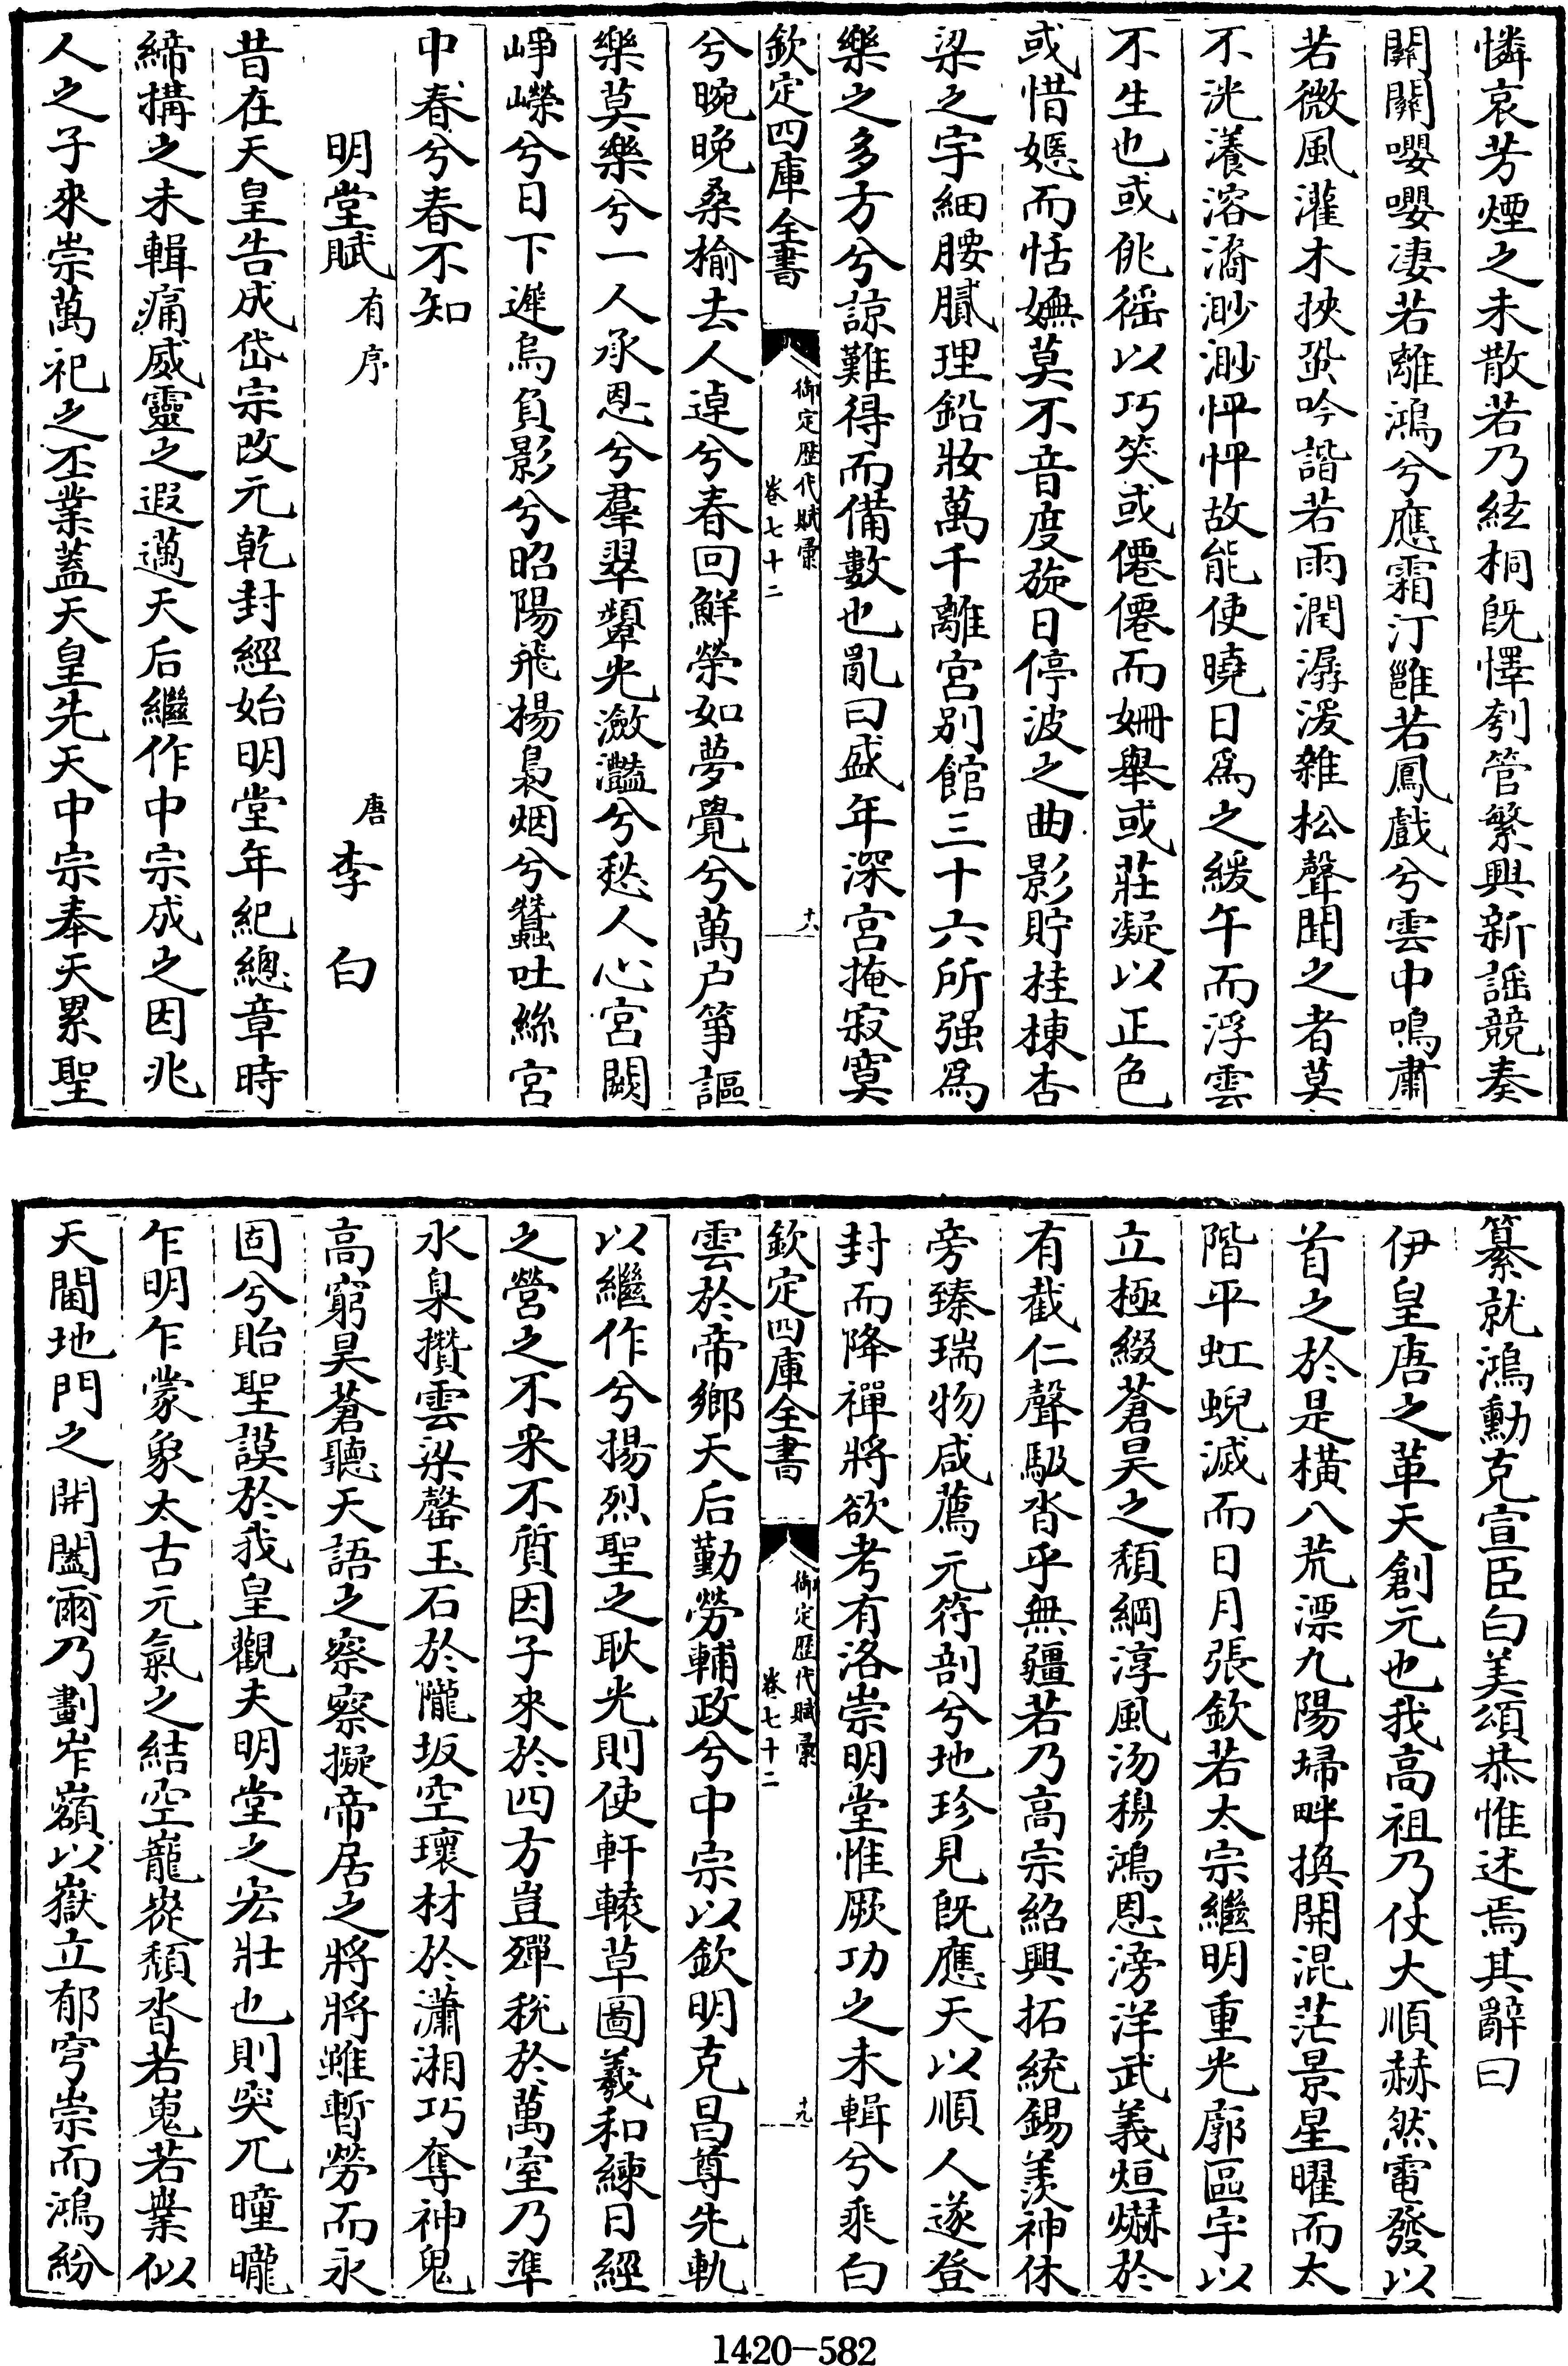 憐哀芳煙之未散若乃絃桐既懌刳管繁興新謡競奏
關關嚶嚶凄若離鴻兮應霜汀雝若鳳戲兮雲中鳴肅
若微風灌木挾蛩吟諧若雨潤潺湲雜松聲聞之者莫
不洸瀁溶潏渺渺怦怦故能使曉日為之緩午而浮雲
不生也或佻傜以巧笑或僊僊而姍舉或莊凝以正色
或惜嫕而恬嫵莫不音度旋日停波之曲影貯桂棟杏
梁之宇細腰膩理鉛妝萬千離宮别館三十六所强為
樂之多方兮諒難得而備數也亂曰盛年深宮掩寂寞
欽定四庫全書
御定歴代賦彚
卷七十二
十八
兮晼晚桑榆去人逴兮春回鮮榮如夢覺兮萬户箏謳
樂莫樂兮一人承恩兮羣翠顰光瀲灩兮愁人心宮闕
崢嶸兮日下遲烏負影兮昭陽飛揚裊烟兮蠶吐絲宮
中春兮春不知
明堂賦有序
唐李白
昔在天皇告成岱宗改元乾封經始明堂年紀總章時
締搆之未輯痛威靈之遐邁天后繼作中宗成之因兆
人之子來崇萬祀之丕業蓋天皇先天中宗奉天累聖
纂就鴻勳克宣臣白美頌恭惟述焉其辭曰
伊皇唐之革天創元也我高祖乃仗大順赫然電發以
首之於是横八荒漂九陽埽畔換開混茫景星曜而太
階平虹蜺滅而日月張欽若太宗繼明重光廓區宇以
立極綴蒼昊之頽綱淳風沕穆鴻恩滂洋武義烜爀於
有截仁聲馺沓乎無疆若乃高宗紹興拓統錫羡神休
旁臻瑞物咸薦元符剖兮地珍見既應天以順人遂登
封而降禪將欲考有洛崇明堂惟厥功之未輯兮乘白
欽定四庫全書
御定歴代賦彚
卷七十二
十九
雲於帝鄉天后勤勞輔政兮中宗以欽明克昌尊先軌
以繼作兮揚烈聖之耿光則使軒轅草圖羲和練日經
之營之不彩不質因子來於四方豈殫税於萬室乃準
水臬攢雲梁罄玉石於隴坂空瓌材於瀟湘巧奪神鬼
高窮昊蒼聽天語之察察擬帝居之將將雖暫勞而永
固兮貽聖謨於我皇觀夫明堂之宏壯也則突兀曈曨
乍明乍蒙象太古元氣之結空巃嵸頽沓若嵬若嶪似
天閫地門之開闔爾乃劃岝嶺以嶽立郁穹崇而鴻紛
1420-582